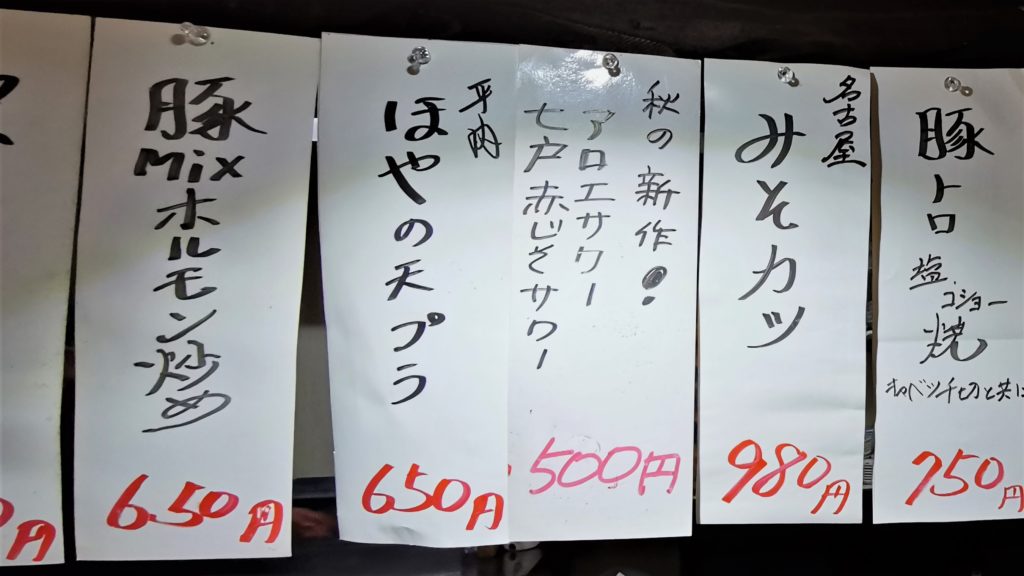 豚トロ
塩コショー
焼
キャベツ千切と共に
750円
名古屋
みそカツ
980円
秋の新作!
アロエサワー
七戸赤じそサワー
500円
平内
ほやの天プラ
650円
豚Mixホルモン炒め
650円
円